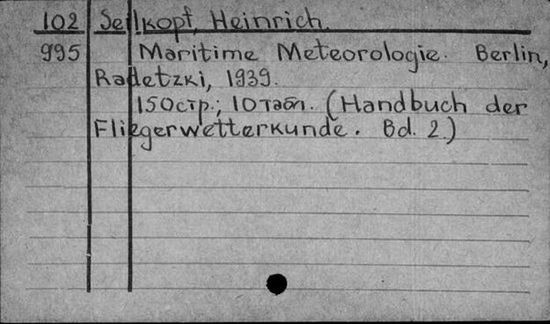 102 Seilkopf, Heinrich.
995 Maritime Meteorologie. Berlin,
Radetzki, 1939.
150стр.; 10табл. (Handbuch der
Fliegerwetterkunde. Bd. 2.)